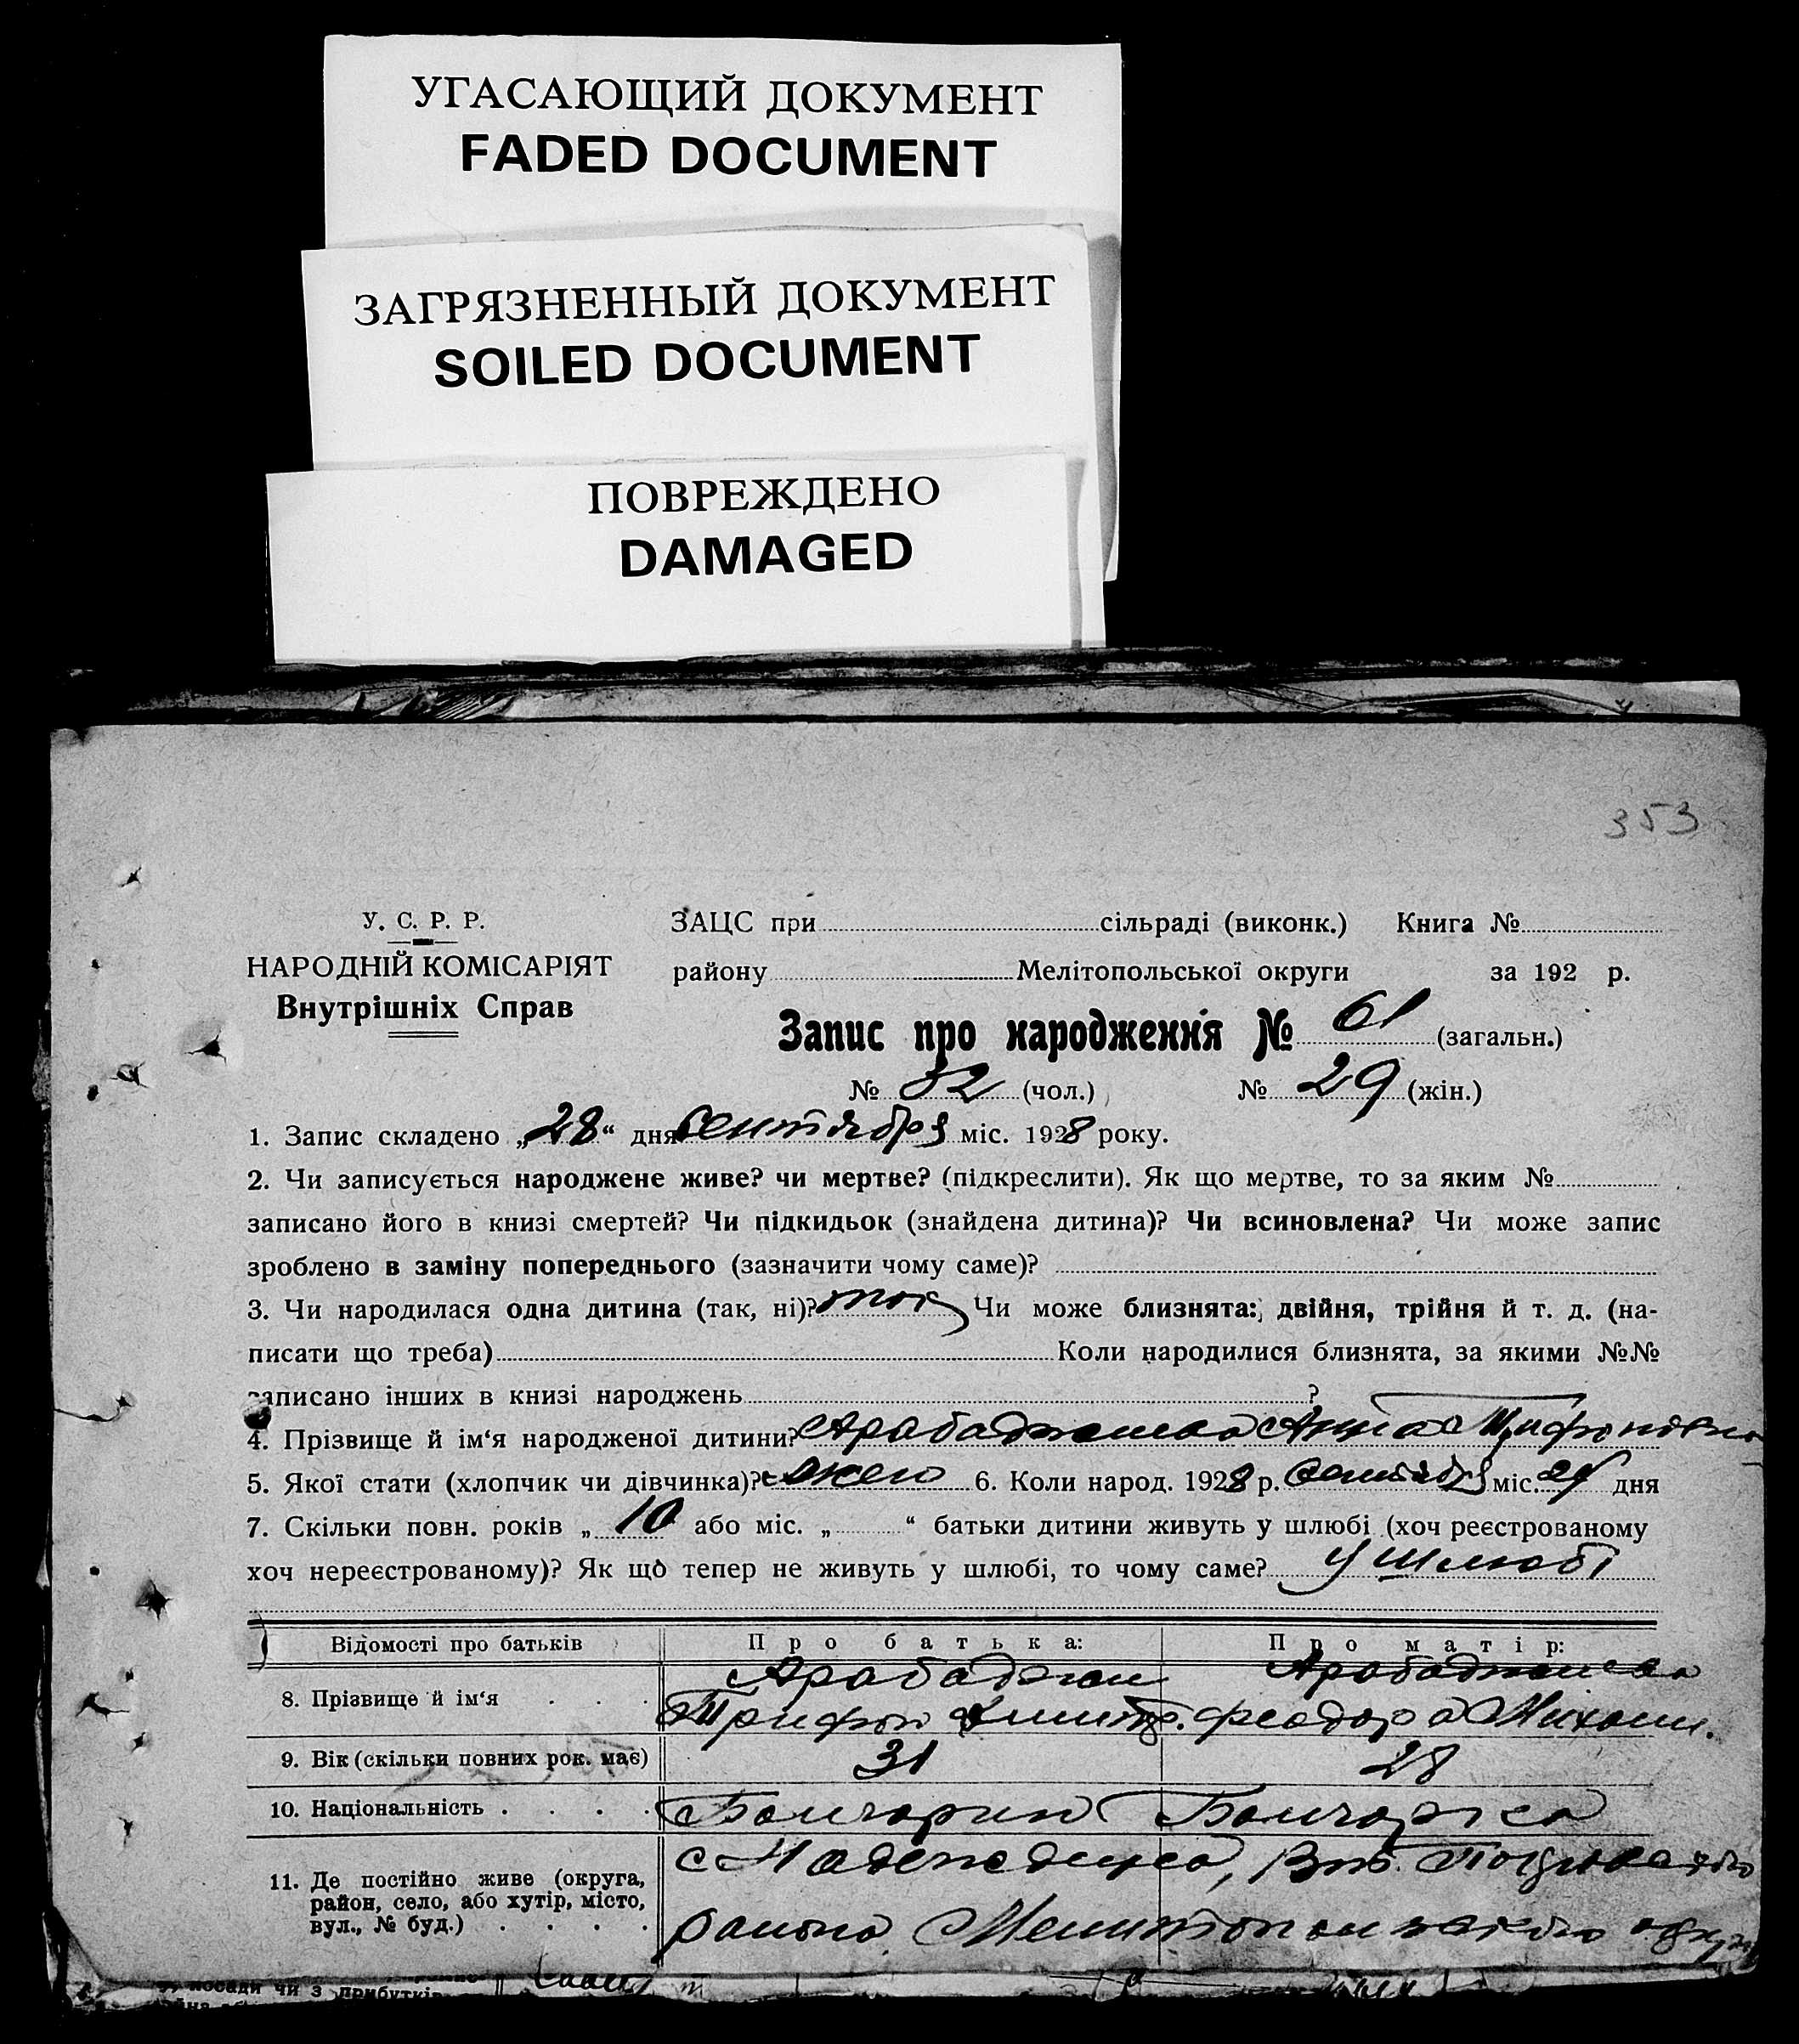 УГАСАЮЩИЙ ДОКУМЕНТ
FADED DOCUMENT
ЗАГРЯЗНЕННЫЙ ДОКУМЕНТ
SOILED DOCUMENT
ПОВРЕЖДЕНО
DAMAGED
353
У. С. Р. Р.
НАРОДНІЙ КОМІСАРІЯТ
Внутрішніх Справ
ЗАЦС при сільраді (виконк.) Книга №
району Мелітопольської округи за 192 р.
Запис про народження № 61 (загальн.)
№ 32 (чол.) № 29 (жін.)
1. Запис складено „28“ дня сентября міс. 1928 року.
2. Чи записується народжене живе? чи мертве? (підкреслити). Як що мертве, то за яким №
записано його в книзі смертей? Чи підкидьок (знайдена дитина)? Чи всиновлена? Чи може запис
зроблено в заміну попереднього (зазначити чому саме)?
3. Чи народилася одна дитина (так, ні)? так Чи може близнята: двійня, трійня й т. д. (на-
писати що треба) Коли народилися близнята, за якими №№
записано інших в книзі народжень ?
4. Прізвище й ім‘я народженої дитини? Арабаджиева Анна Трифоновна
5. Якої стати (хлопчик чи дівчинка)? 6. Коли народ. 1928 р. сентября міс. дня
7. Скільки повн. років „10 або міс. „ “ батьки дитини живуть у шлюбі (хоч реєстрованому
хоч нереєстрованому)? Як що тепер не живуть у шлюбі, то чому саме? У шлюбі
Відомості про батьків Про батька: Про матір:
8. Прізвище й ім‘я . . . Арабаджи Арабаджиева
Трифон Дмитр. Феодора Михаил.
9. Вік (скільки повних рок. має) 31 28
10. Національність . . . . Болгарин Болгарка
11. Де постійно живе (округа,
район, село, або хутір, місто,
вул., № буд.) . . . .
с Надеждино,
района Мелитопольского округа
посади чи з прибутків